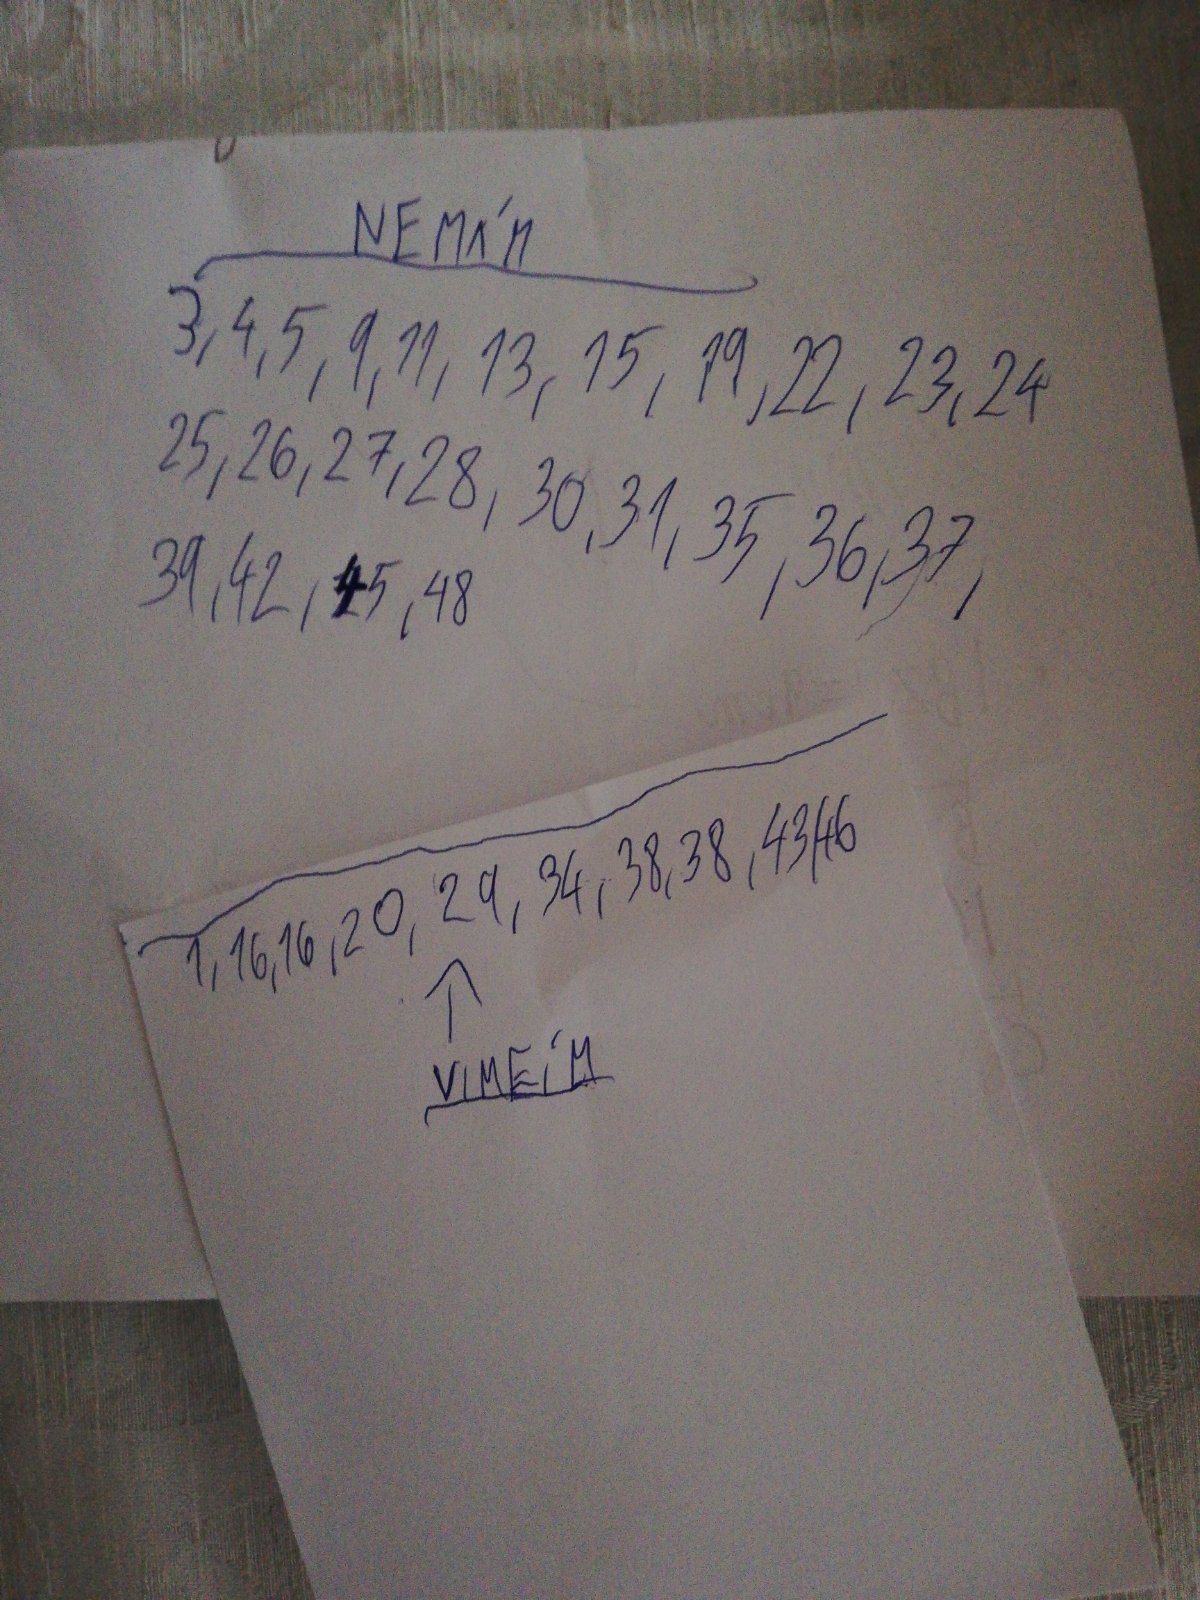 NEMÁM
3,4,5,9,11,13,15,19,22,23,24
25,26,27,28,30,31,35,36,37,
39,42,45,48
1,16,16,20,29,34,38,38,43,46
VIMEÍM